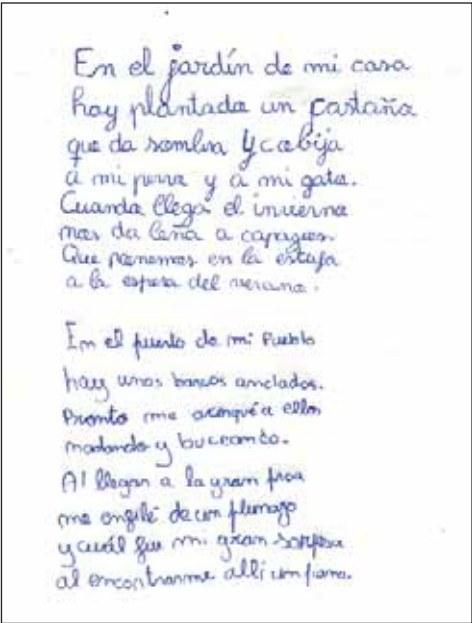 En el jardín de mi casa
hay plantada un castaña
que da sombra y cobija
a mi perra y a mi gata.
Cuando llega el invierno
nos da leña a capazos.
Que ponemos en la estufa
a la espera del verano.
En el puerto de mi Pueblo
hay unos barcos anclados.
Pronto me acerqué a ellos
nadando y buceando.
Al llegar a la gran proa
me enfilé de un plumazo
y cuál fue mi gran sorpresa
al encontrarme allí un piano.